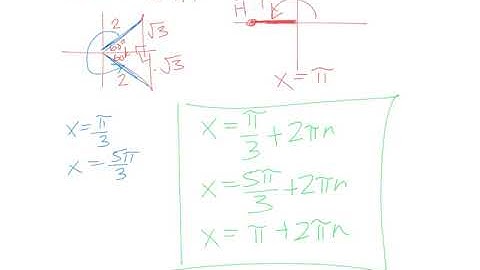 2
√3
60°
60°
√3
2
H
x = π
x = π/3
x = 5π/3
x = π/3 + 2πn
x = 5π/3 + 2πn
x = π + 2πn